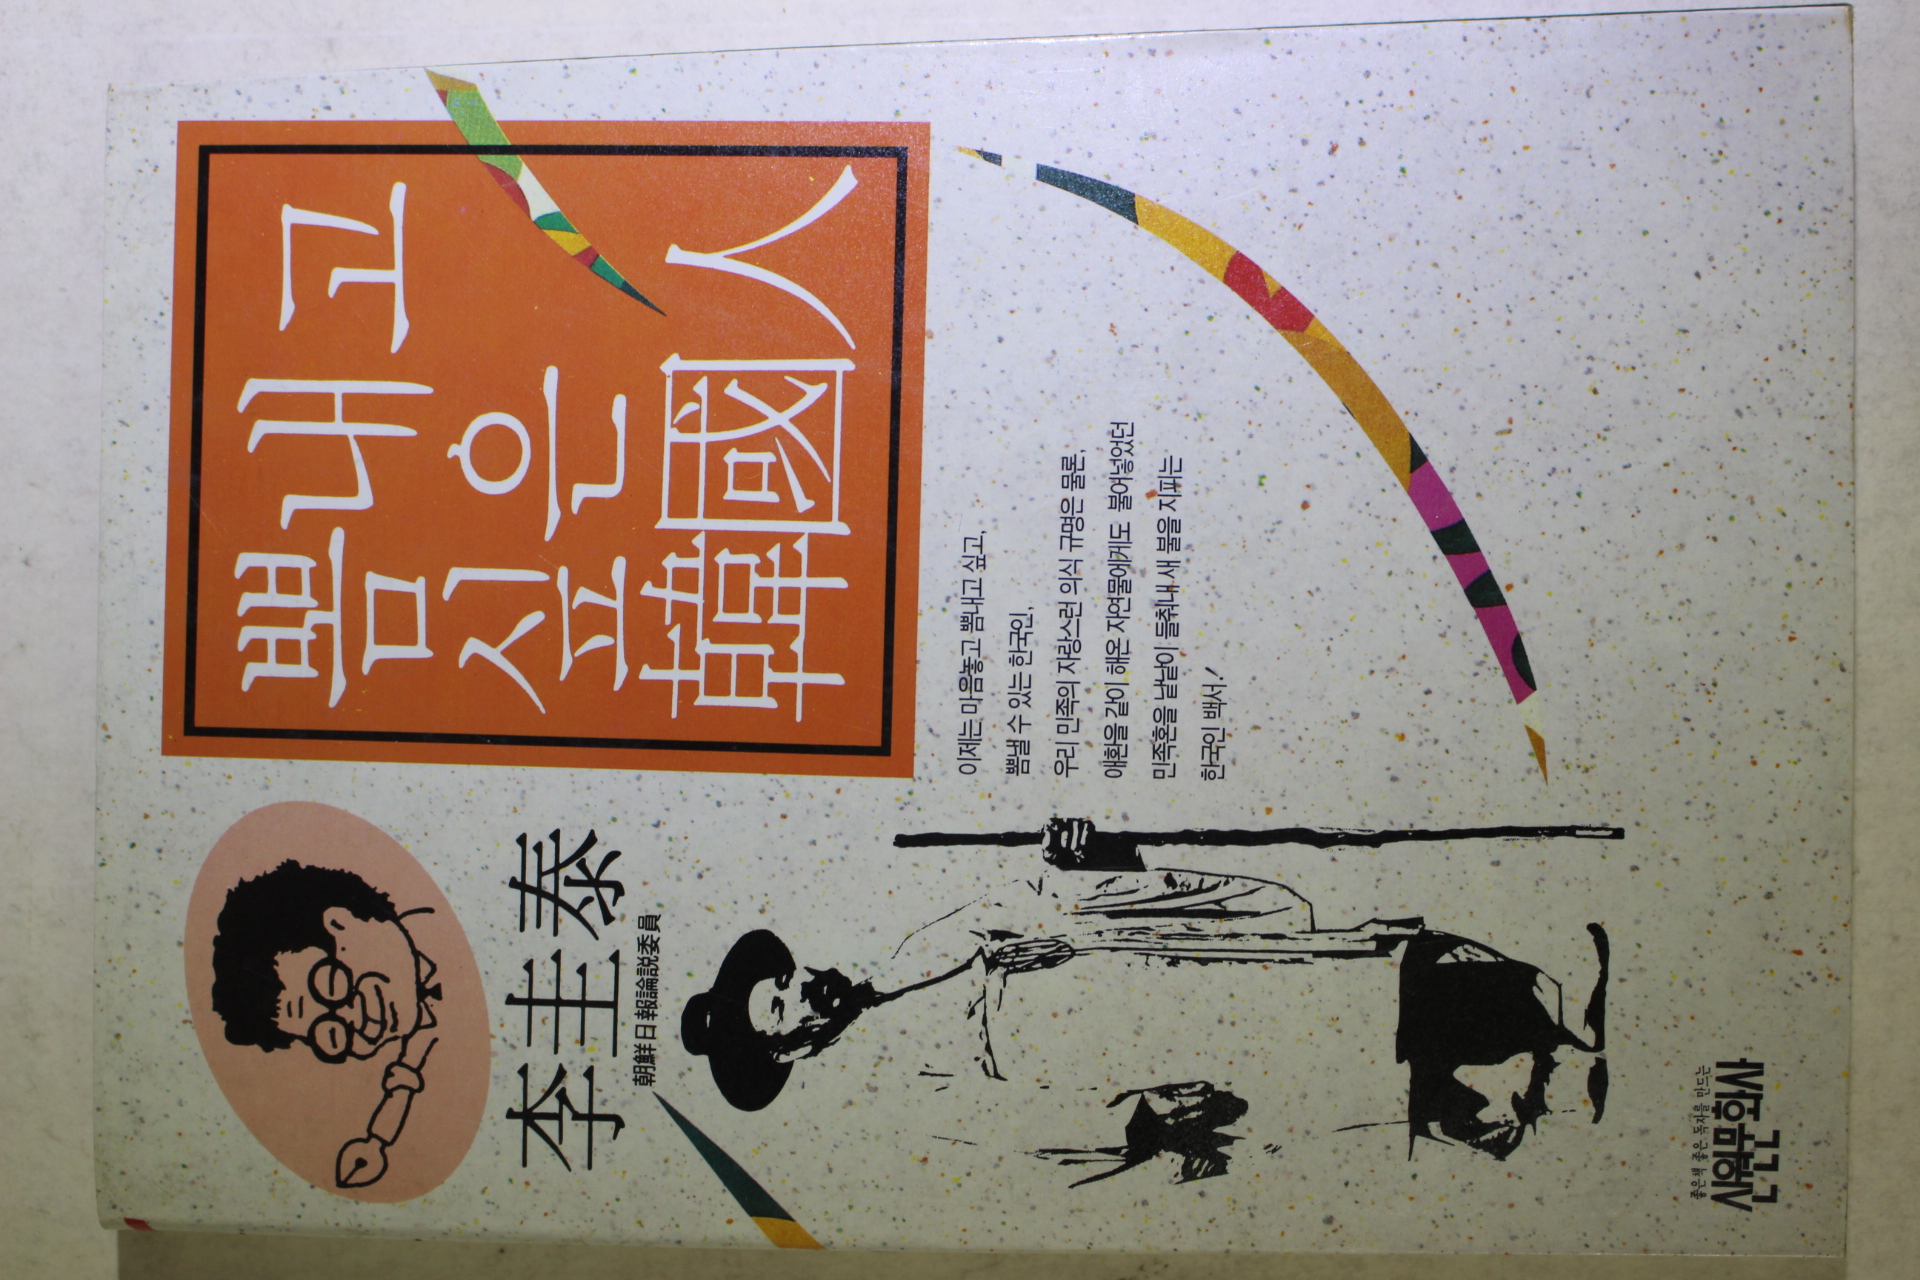 뽐내고
싶은
韓國人
李圭泰
朝鮮日報論說委員
이제는 마음놓고 뽐내고 싶고,
뽐낼 수 있는 한국인,
우리 민족의 자랑스런 의식 규명은 물론,
애환을 같이 해온 자연물에게도 불어넣었던
민족혼을 낱낱이 들춰내 새 불을 지피는
한국인 백서!
좋은책 좋은 독자를 만드는
신원문화사